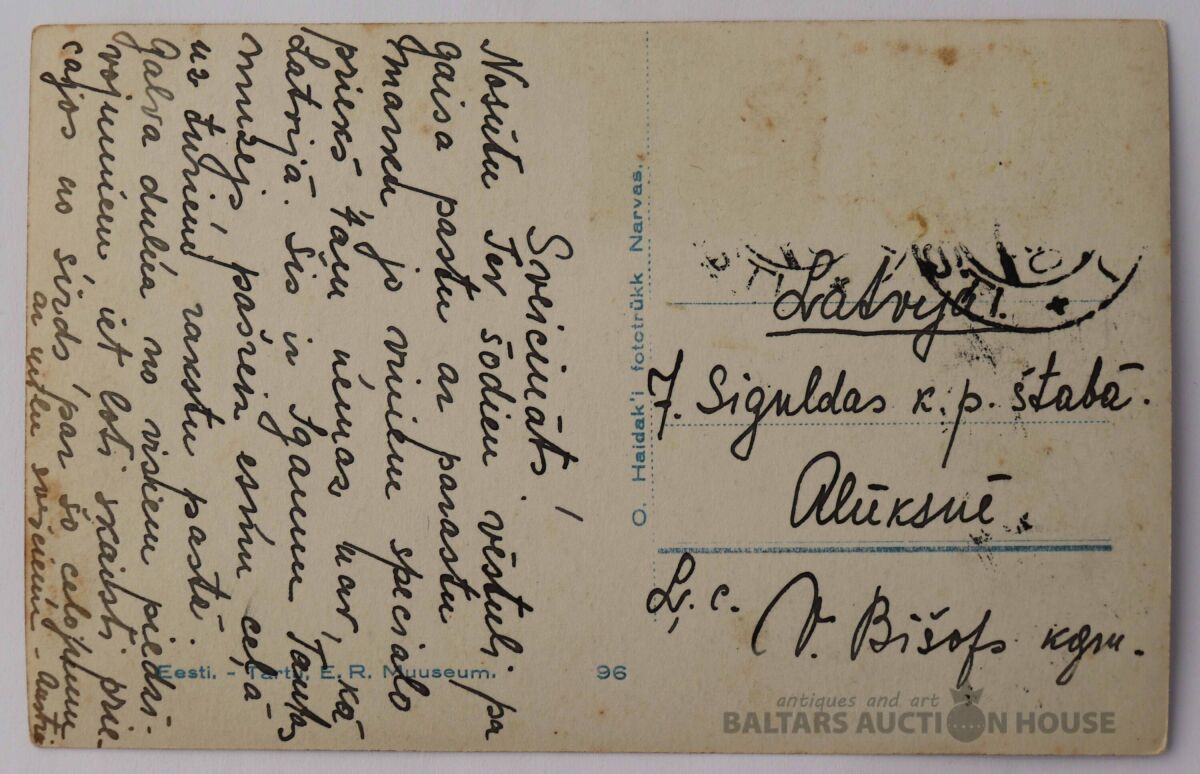 Sveicināts!
Nosūtu Tev šodien vēstuli pa
gaisa pastu ar parastu
marku, jo viņiem speciālo
priekš tam nemaz nav, kā
Latvijā. Šis ir Igauņu Tautas
muzejs, pašreiz esmu ceļā
uz turieni rakstu pastā.
Galva dulla no visiem piedzī-
vojumiem iet ļoti skaisti prie-
cajos no sirds par šo ceļojumu
ar sveicieniem -
O. Haidak'i fototrükk Narvas.
Eesti. - Tartu, E. R. Muuseum. 96
Latvijā.
7. Siguldas k. p. štabā.
Alūksnē.
Ļ. c. V. Bišofs kgm.
antiques and art
BALTARS AUCTION HOUSE